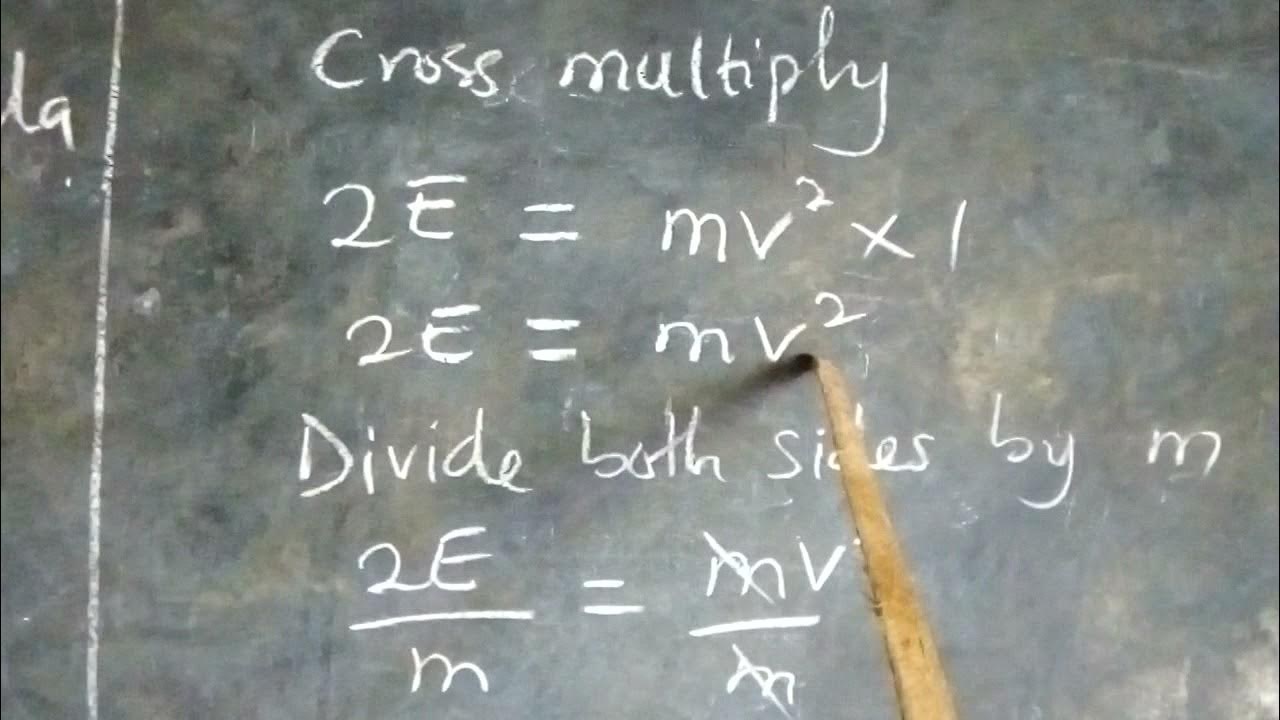 Cross multiply
2E = mv² × 1
2E = mv²
Divide both sides by m
2E/m = mv/m